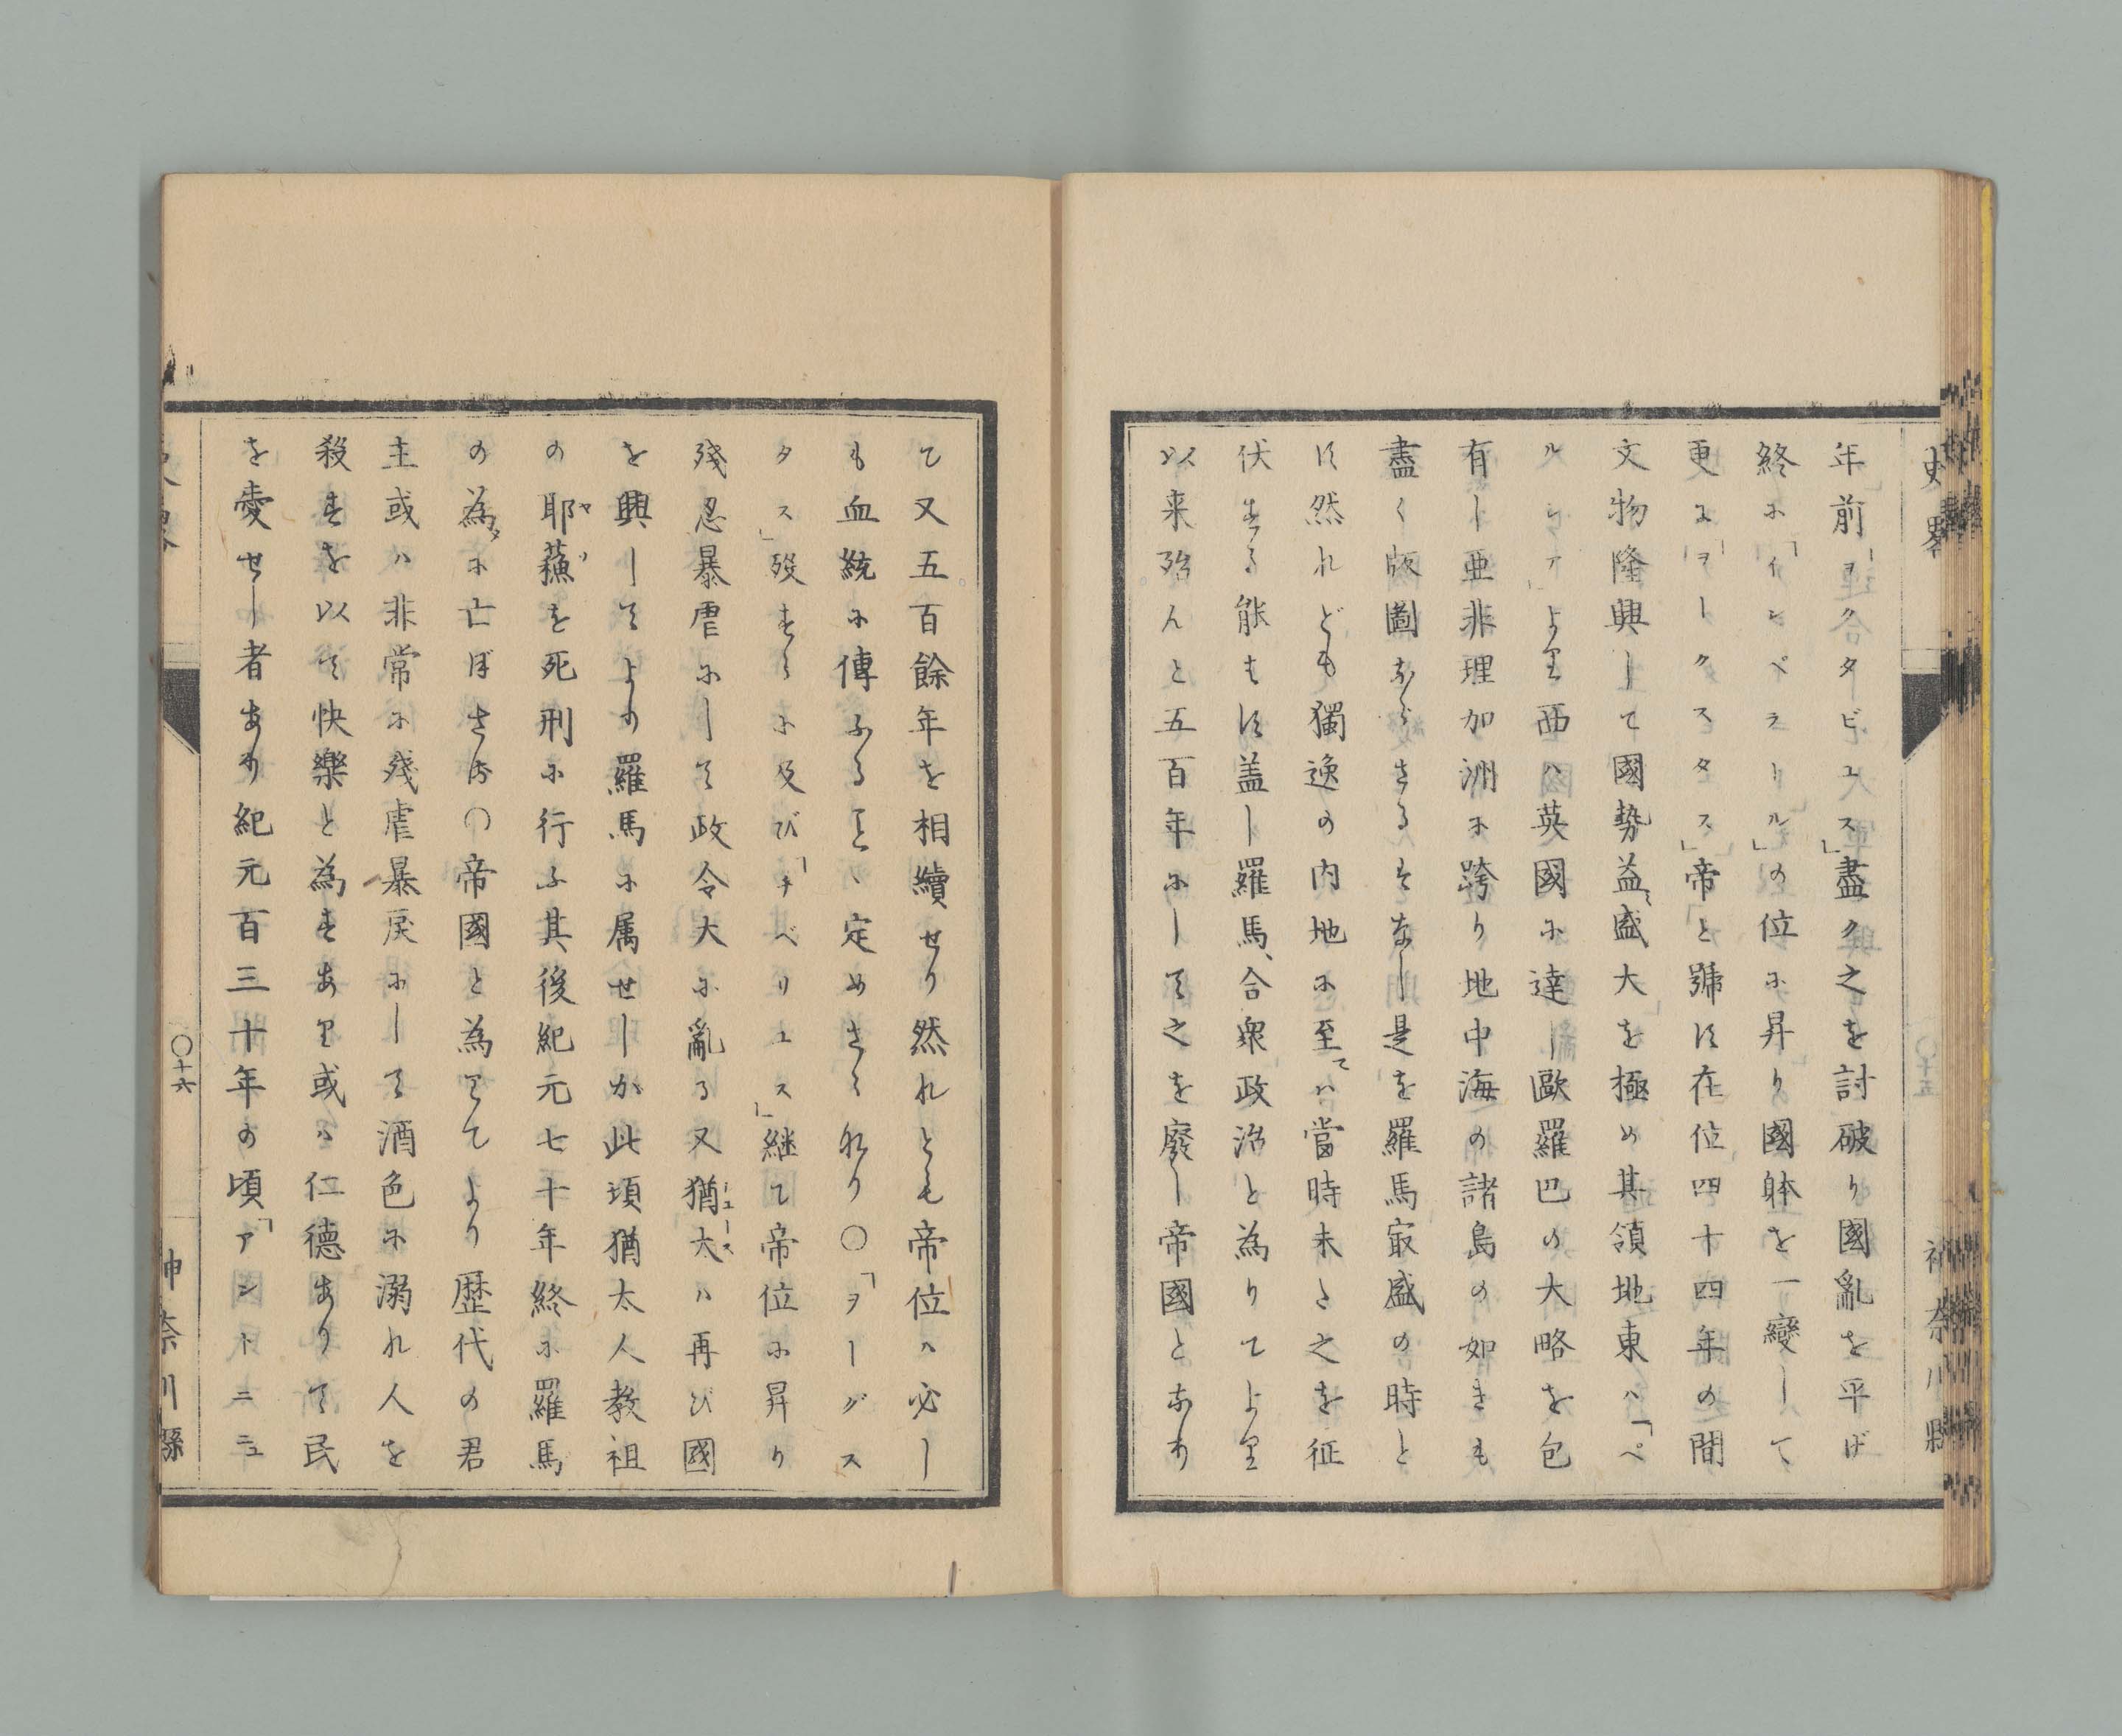 年前「ヲクタビユス」盡ク之を討破り國亂を平げ
終に「インペラトル」の位に昇り國躰を一變して
更に「ヲークスタス」帝と號す在位四十四年の間
文物隆興して國勢益〻盛大を極め其領地東ハ「ペ
ルシア」より西ハ英國に達し歐羅巴の大略を包
有し亜非理加洲に跨り地中海の諸島の如きも
盡く版圖ならざるはなし是を羅馬㝡盛の時と
す然れども獨逸の内地に至てハ當時未た之を征
伏する能はす盖し羅馬、合衆政治と為りてより
以来殆んと五百年にして之を廢し帝國となり
て又五百餘年を相續せり然れとも帝位ハ必し
も血統に傳ふることゝ定めさるなり〇「ヲーグス
タス」歿するに及び「チベリユス」継て帝位に昇り
殘忍暴虐にして政令大に亂る又猶太ハ再び國
を興してより羅馬に属せしか此頃猶太人教祖
の耶蘇を死刑に行ふ其後紀元七十年終に羅馬
の為に亡ぼさる〇帝國と為りてより歴代の君
主或ハ非常に殘虐暴戻にして酒色に溺れ人を
殺すを以て快樂と為すあり或ハ仁德ありて民
を愛せし者あり紀元百三十年の頃「アントニニュ
〇十六
神奈川縣
史畧
神奈川縣